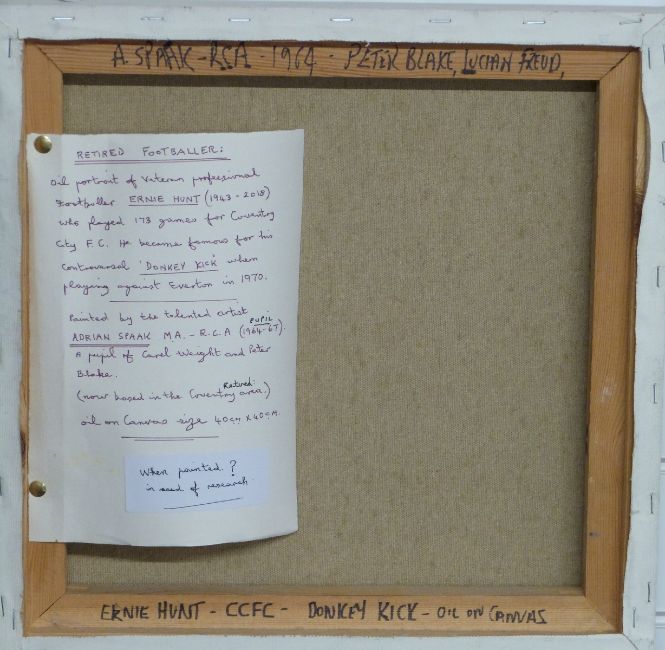 A. SPAAK - RCA - 1964 - PETER BLAKE, LUCIAN FREUD,
RETIRED FOOTBALLER:
Oil portrait of Veteran professional
Footballer ERNIE HUNT (1943 - 2018)
who played 173 games for Coventry
City F.C. He became famous for his
controversal 'DONKEY KICK' when
playing against Everton in 1970.
Painted by the talented artist
ADRIAN SPAAK M.A. - R.C.A PUPIL (1964-67).
A pupil of Carel Weight and Peter
Blake.
(now based in the Coventry area.) Retired.
oil on Canvas size 40cm x 40cm.
When painted. ?
in need of research.
ERNIE HUNT - CCFC - DONKEY KICK - OIL ON CANVAS